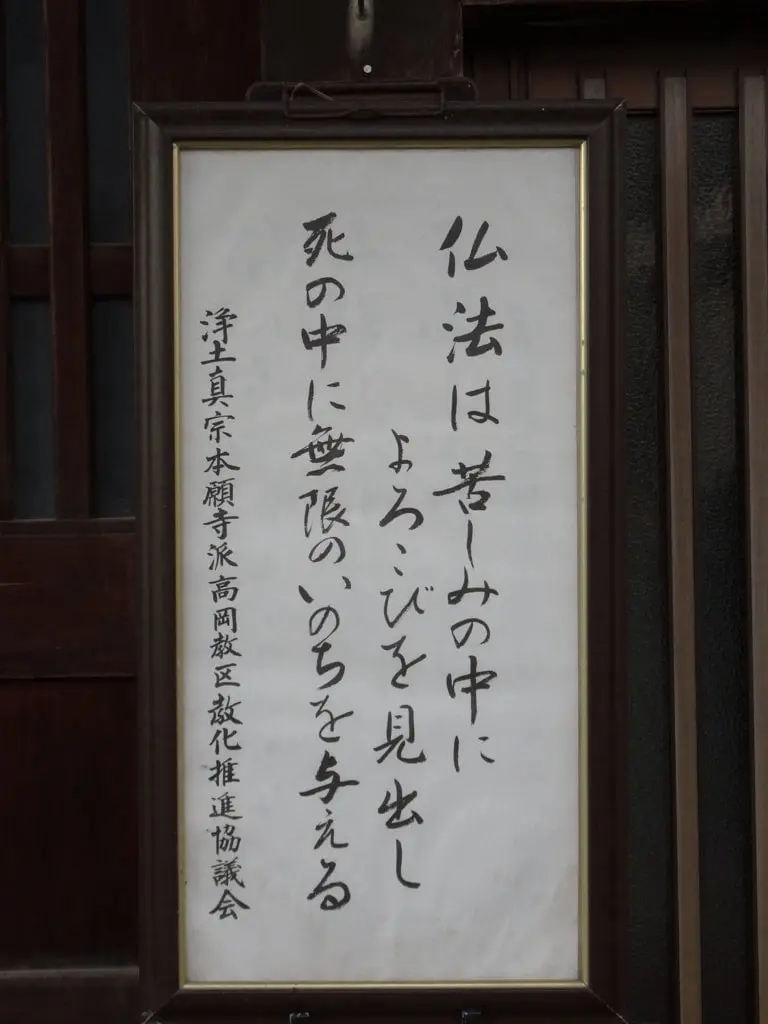 仏法は苦しみの中に
よろこびを見出し
死の中に無限のいのちを与える
浄土真宗本願寺派高岡教区教化推進協議会